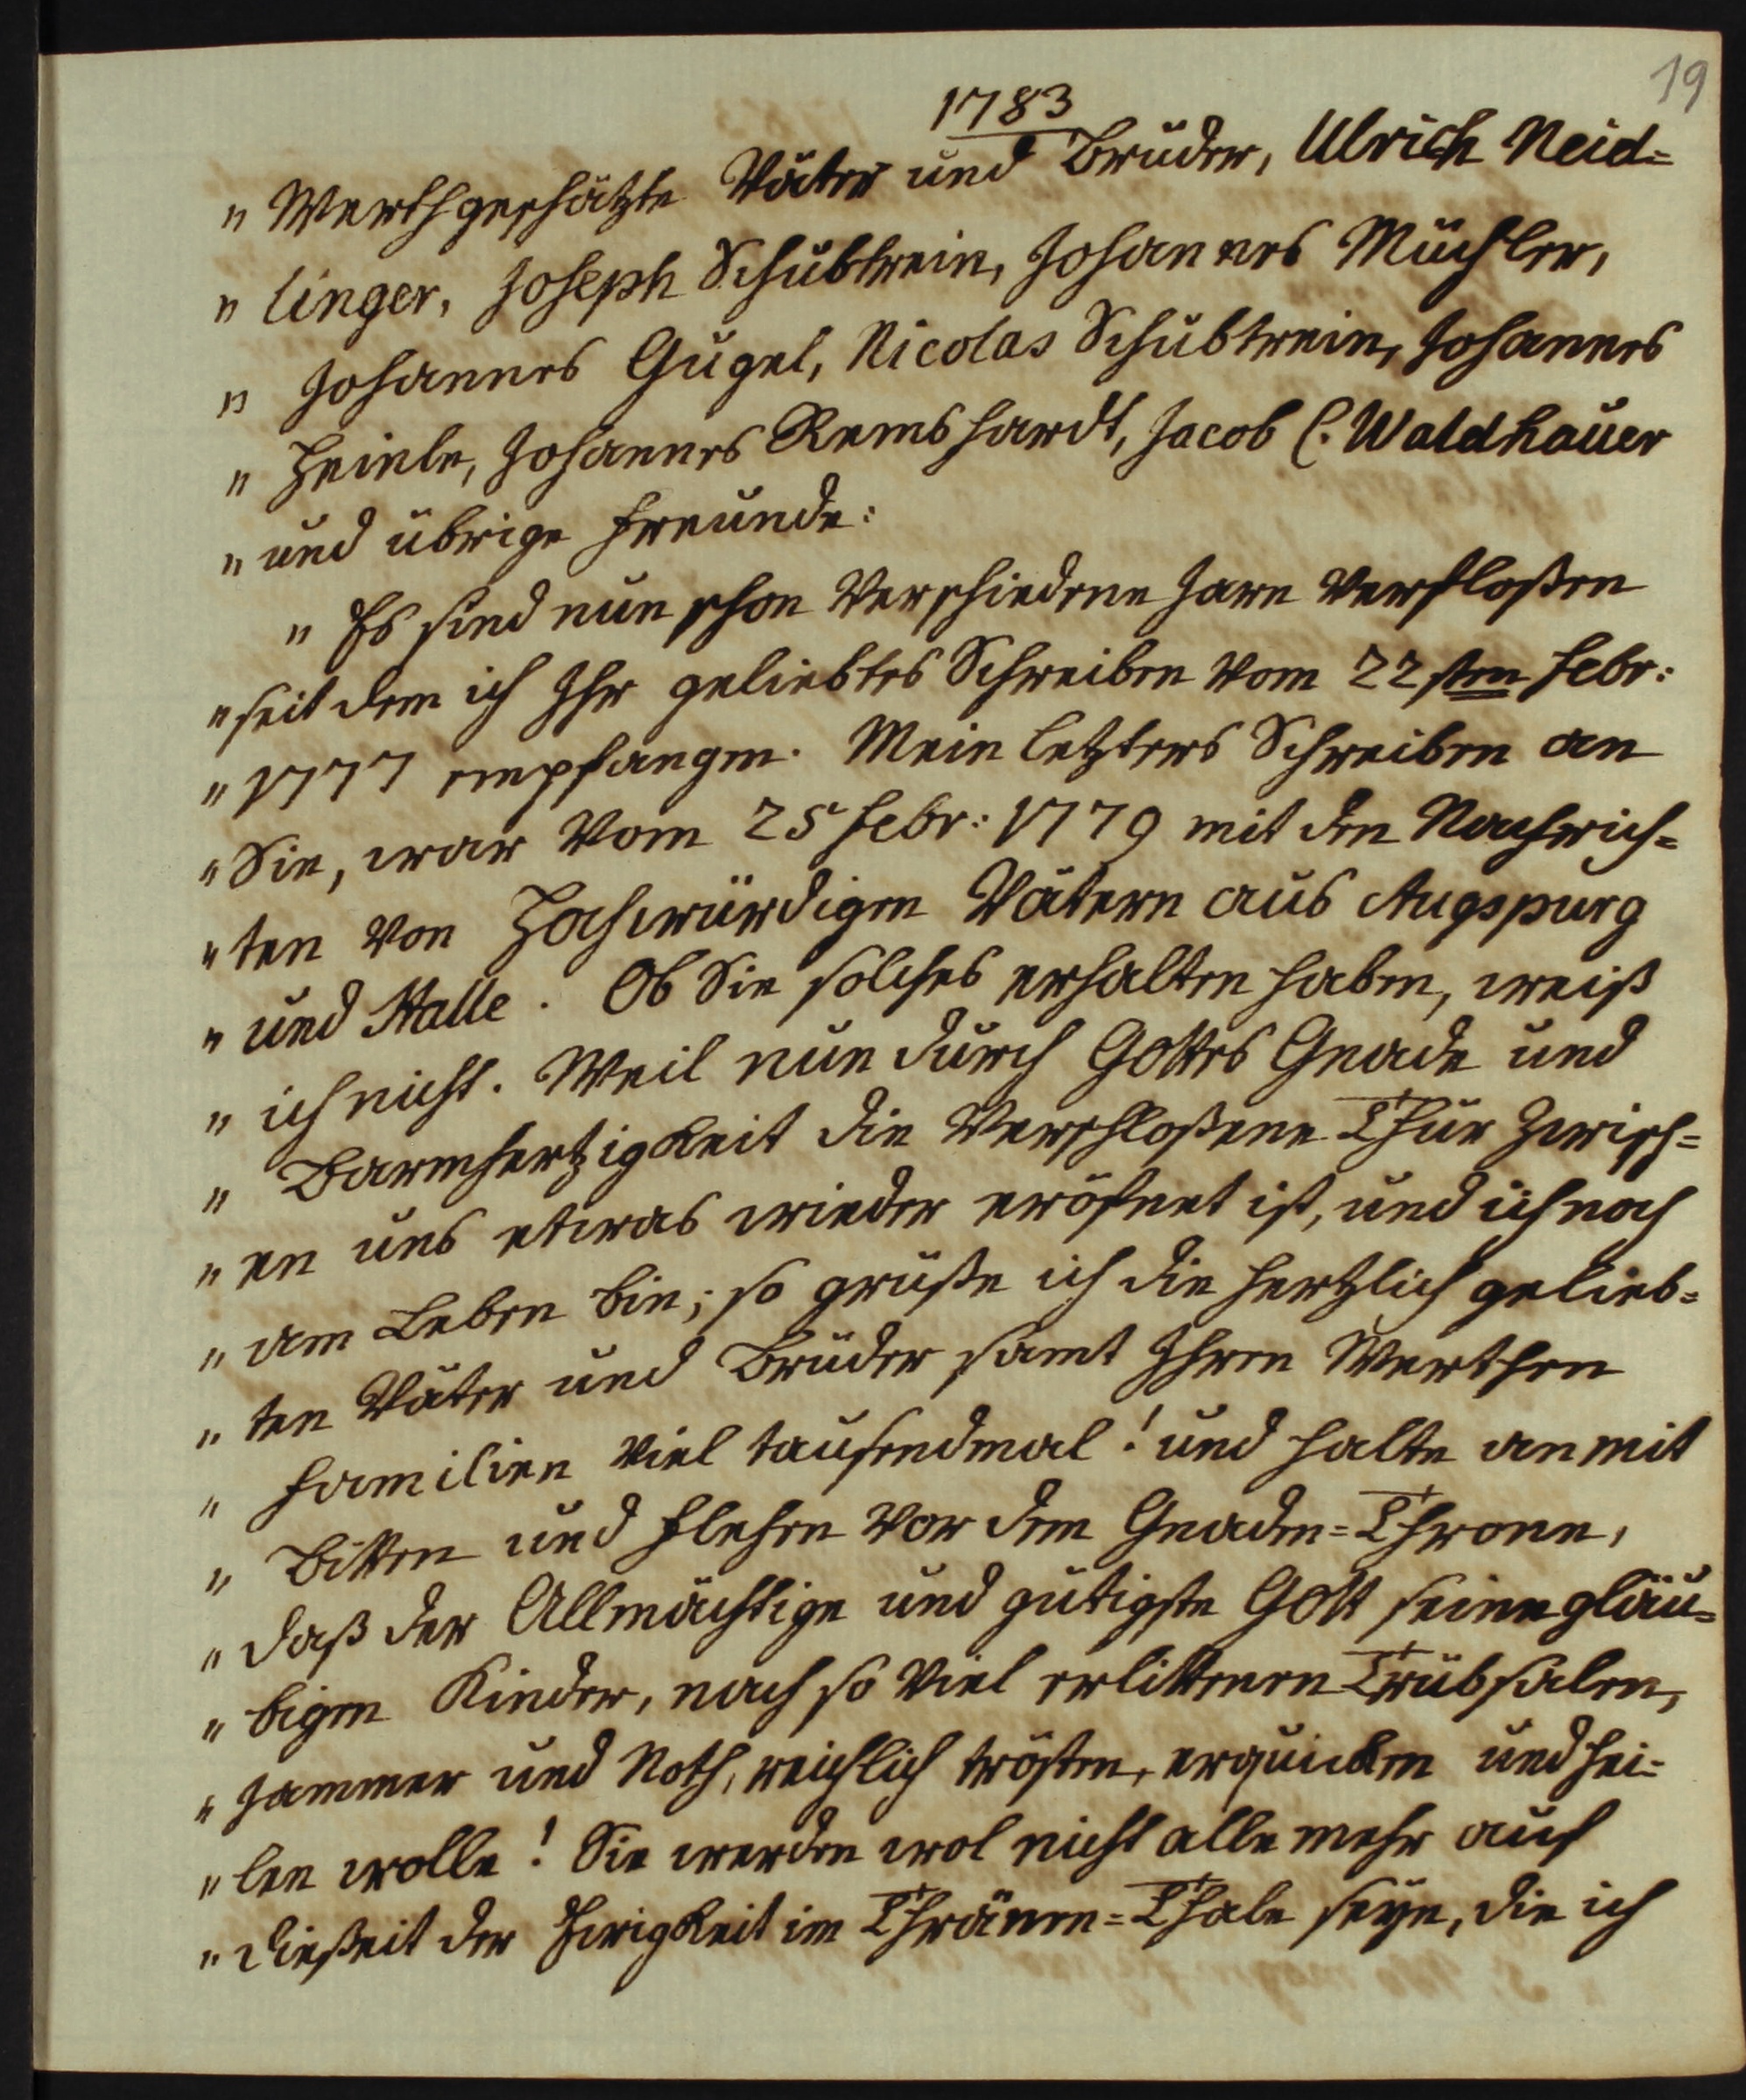 19
1783
" Werthgeschätzte Väter und Brüder, Ulrich Neid=
" linger, Joseph Schubtrein, Johannes Müchler,
" Johannes Gugel, Nicolas Schubtrein, Johannes
" Heinle, Johannes Remshardt, Jacob C. Waldhauer
" und übrige Freunde:
" Es sind nun schon Verschiedene Jare Verfloßen
" seit dem ich Ihr geliebtes Schreiben Vom 22sten Febr:
" 1777 empfangen. Mein letzteres Schreiben an
" Sie, war Vom 25 Febr: 1779 mit den Nachrich=
" ten Von Hochwürdigen Vätern aus Augspurg
" und Halle. Ob Sie solches erhalten haben, weiß
" ich nicht. Weil nun durch Gottes Gnade und
" Barmhertzigkeit die Verschloßene Thür zwisch=
" en uns etwas wieder eröfnet ist, und ich noch
" am Leben bin; so grüße ich die hertzlich gelieb=
" ten Väter und Brüder samt Ihren Werthen
" Familien Viel tausendmal! und halte an mit
" Bitten und Flehen Vor dem Gnaden=Throne,
" daß der Allmächtige und gütigste Gott seine gläu=
" bigen Kinder, nach so Viel erlittenen Trübsalen,
" Jammer und Noth, reichlich trösten, erquicken und hei=
" len wolle! Sie werden wol nicht alle mehr auf
" dießeit der Ewigkeit im Thränen=Thale seyn, die ich